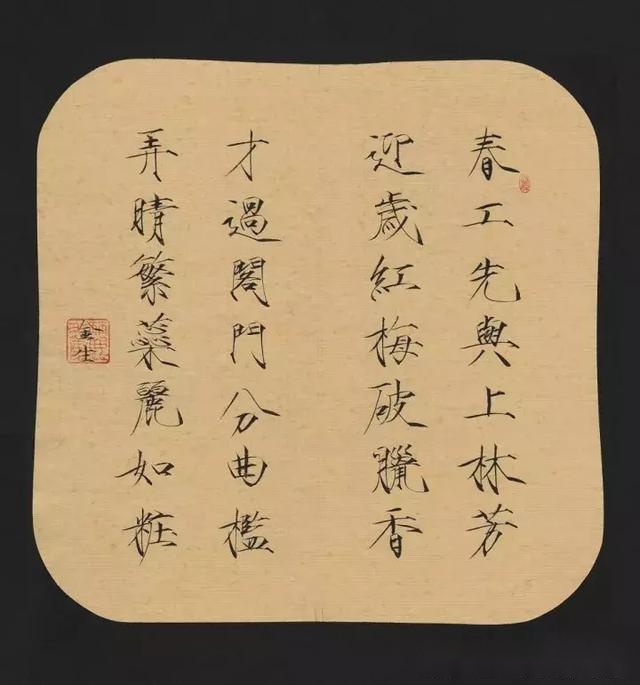 春工先與上林芳
迎歲紅梅破臘香
才過閣門分曲檻
弄晴繁蘂麗如粧
金生